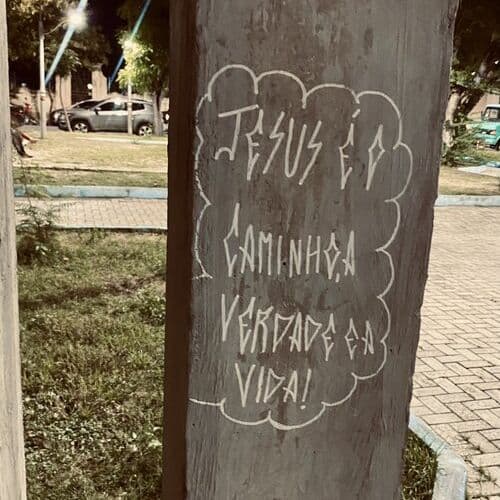 JESUS É O
CAMINHO,A
VERDADE E A
VIDA!